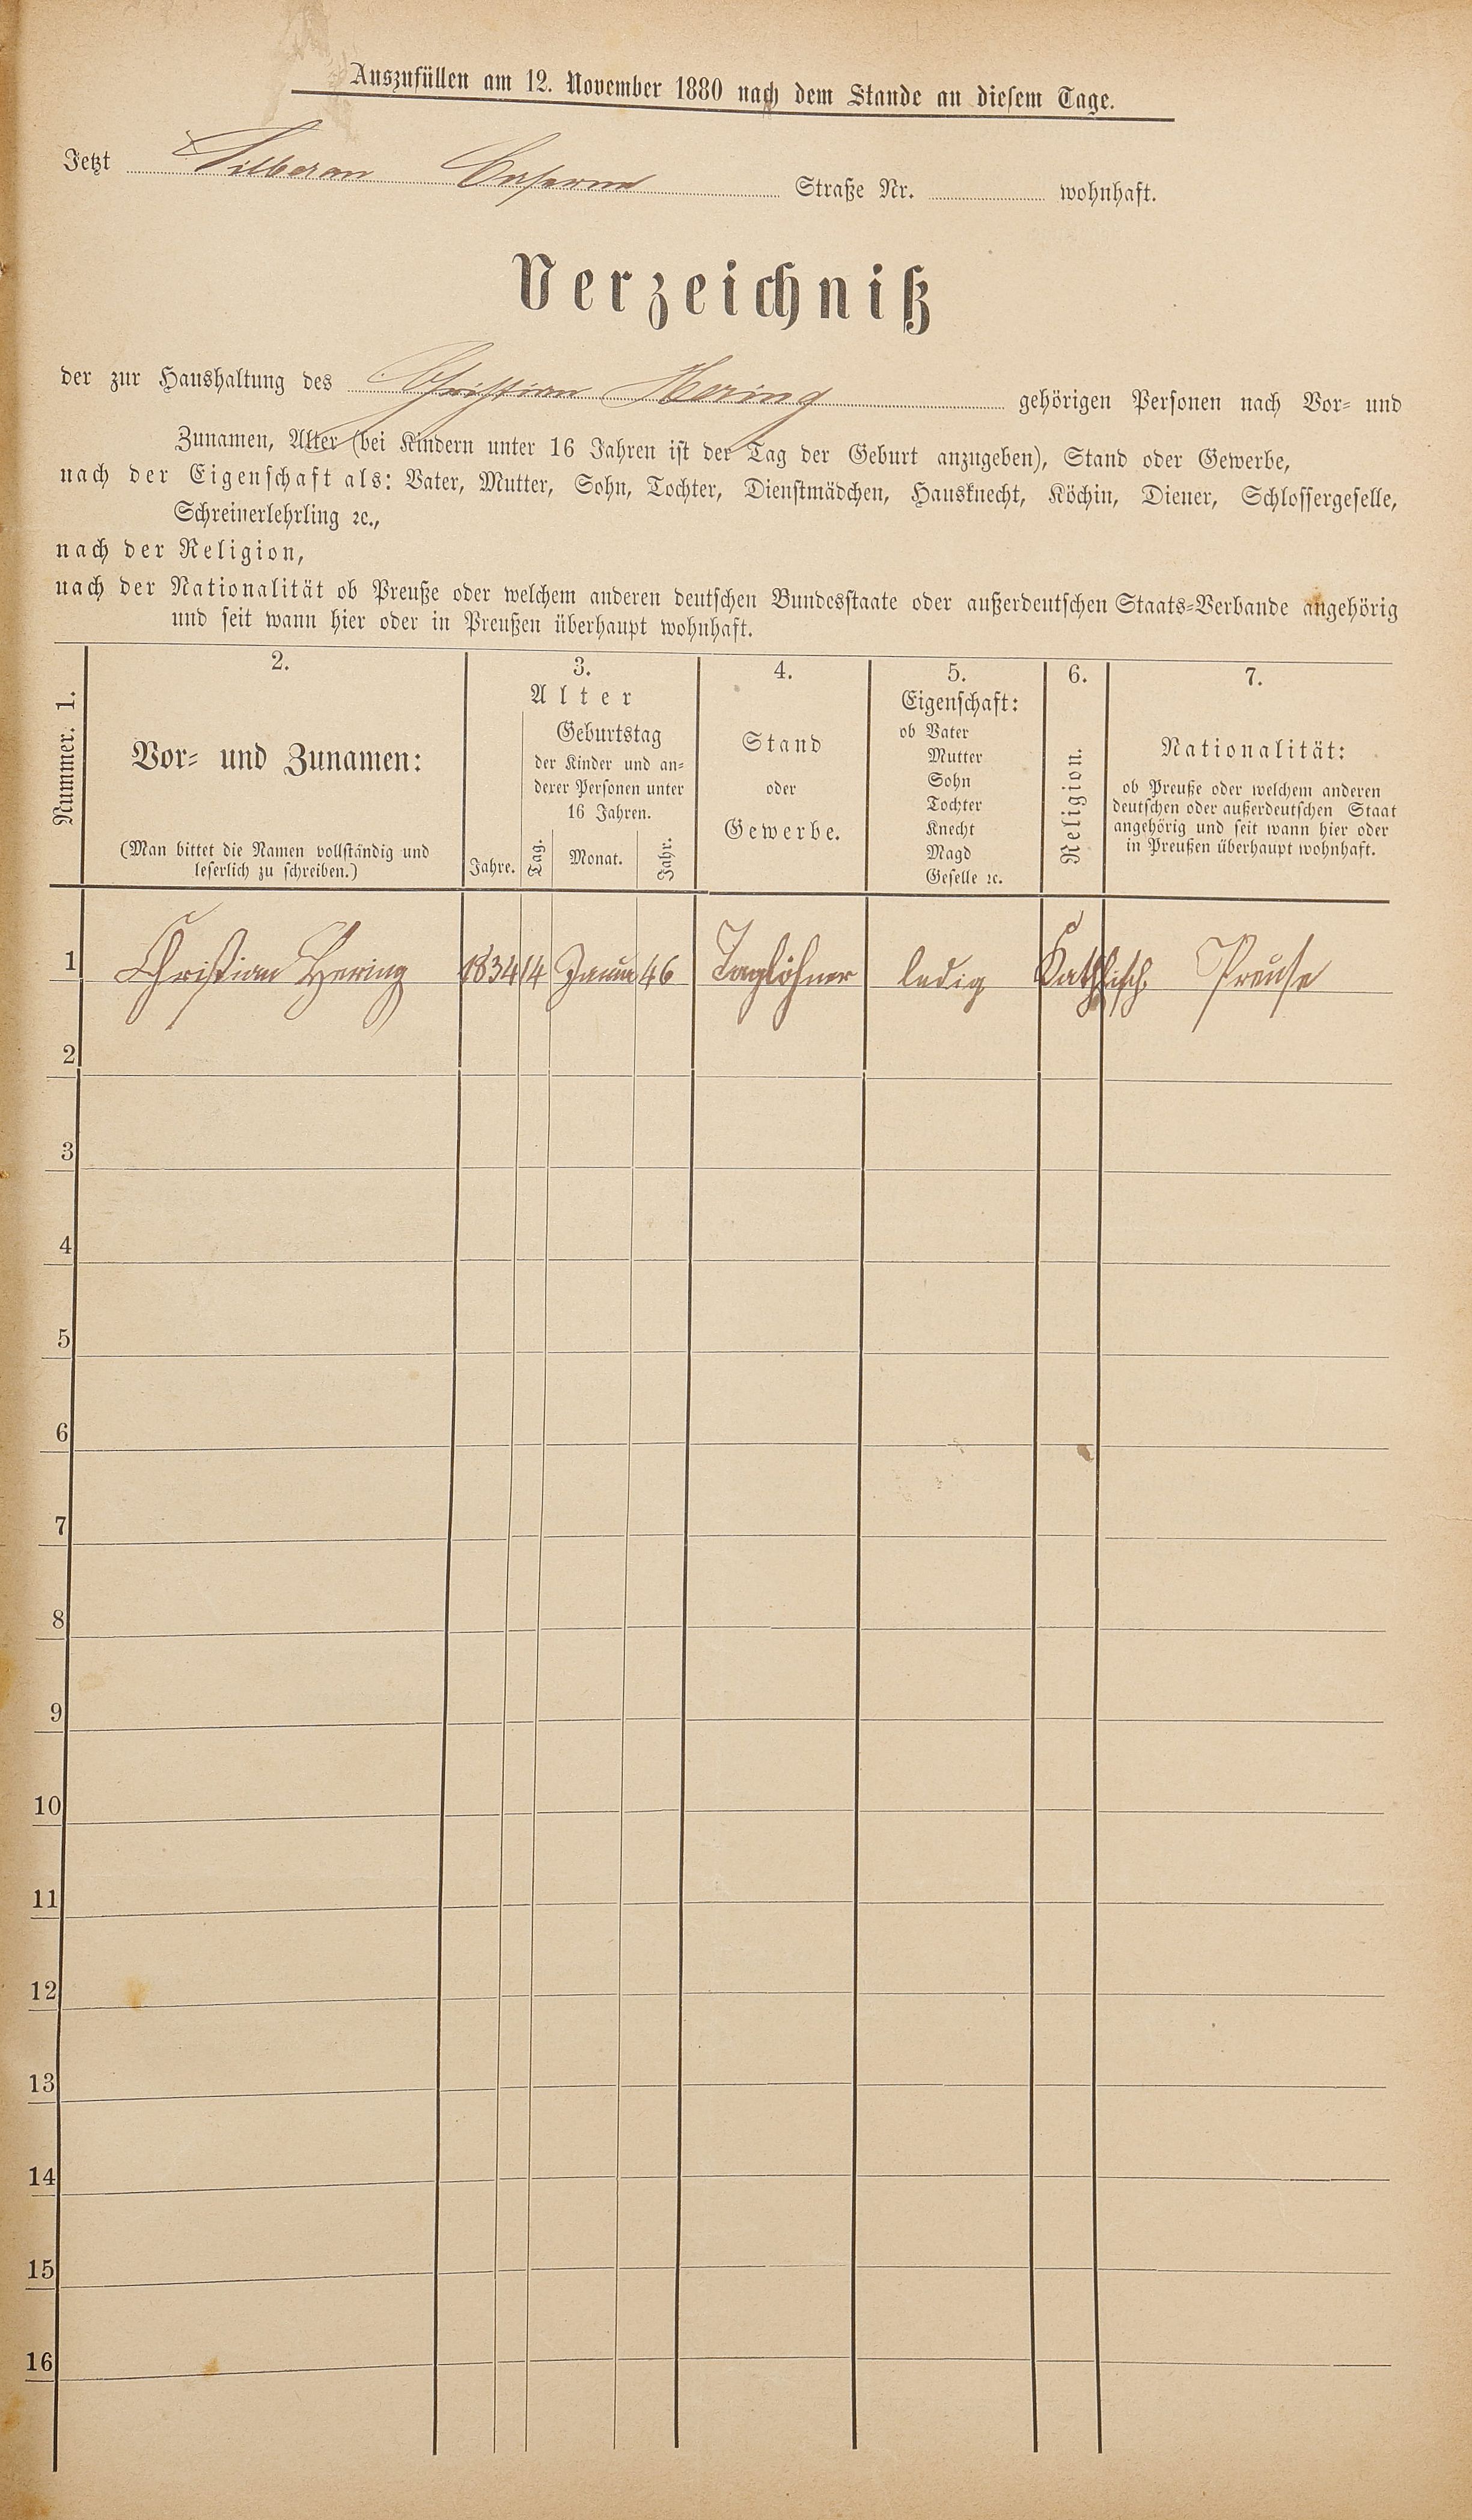 Auszufüllen am 12. November 1880 nach dem Stande an diesem Tage.
Jetzt Silberau Caserne Straße Nr. wohnhaft.
Verzeichniß
der zur Haushaltung des Christian Hering gehörigen Personen nach Vor- und
Zunamen, Alter (bei Kindern unter 16 Jahren ist der Tag der Geburt anzugeben), Stand oder Gewerbe,
nach der Eigenschaft als: Vater, Mutter, Sohn, Tochter, Dienstmädchen, Hausknecht, Köchin, Diener, Schlossergeselle,
Schreinerlehrling ꝛc.,
nach der Religion,
nach der Nationalität ob Preuße oder welchem anderen deutschen Bundesstaate oder außerdeutschen Staats-Verbande angehörig
und seit wann hier oder in Preußen überhaupt wohnhaft.
Nummer. 1.
2.
Vor- und Zunamen:
(Man bittet die Namen vollständig und
leserlich zu schreiben.)
3.
Alter
Geburtstag
der Kinder und an-
derer Personen unter
16 Jahren.
Jahre. Tag. Monat. Jahr.
4.
Stand
oder
Gewerbe.
5.
Eigenschaft:
ob Vater
Mutter
Sohn
Tochter
Knecht
Magd
Geselle ꝛc.
6.
Religion.
7.
Nationalität:
ob Preuße oder welchem anderen
deutschen oder außerdeutschen Staat
angehörig und seit wann hier oder
in Preußen überhaupt wohnhaft.
1 Christian Hering 1834 14 Januar 46 Taglöhner ledig Kathlisch Preuse
2
3
4
5
6
7
8
9
10
11
12
13
14
15
16